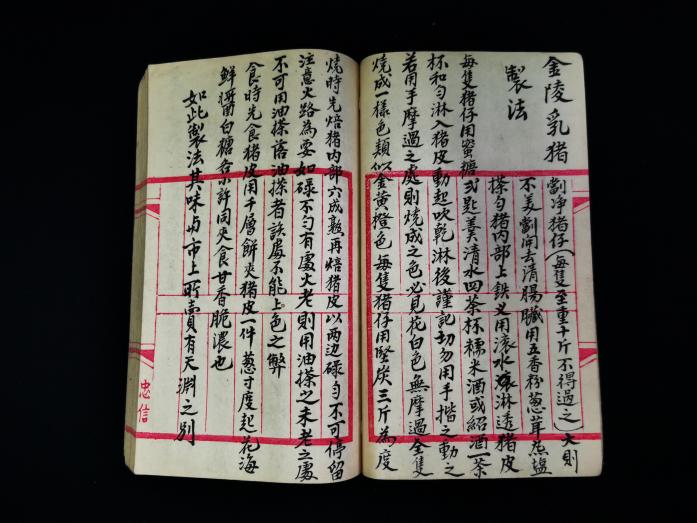 金陵乳猪
製法
劏净猪仔（每隻至重十斤不得過之）大則
不美劏開去清腸臟用五香粉葱茸盐
搽匀猪内部上鉄叉用滚水淋透猪皮
每隻猪仔用蜜糖弍匙羹清水四茶杯糯米酒或紹酒一茶
杯和匀淋入猪皮動起吹乾淋後謹記切勿用手揩之動之
若用手摩過之處則燒成之色必見花白色無摩過全隻
燒成一樣色類似金黄橙色每隻猪仔用堅炭三斤為度
燒時先焙猪内部六成熟再焙猪皮以两边碌匀不可停留
注意火路為要如碌不匀有處火老則用油搽之未老之處
不可用油搽落油搽者該處不能上色之弊
食時先食猪皮用千層餅夾猪皮一件葱寸度起花海
鮮醬白糖各小許同夾食甘香脆濃也
如此製法其味与市上所賣有天淵之别
忠信